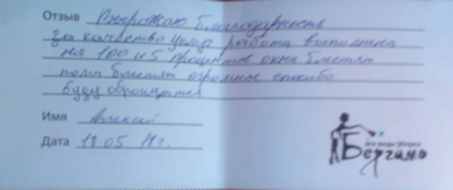 Отзыв Выражаю благодарность
за качество уборки работа выполнена
на 100 и 5 процентов окна блестят
полы блестят огромное спасибо
буду обращаться
Имя Алексей
Дата 18 05 14г.
Бергамо